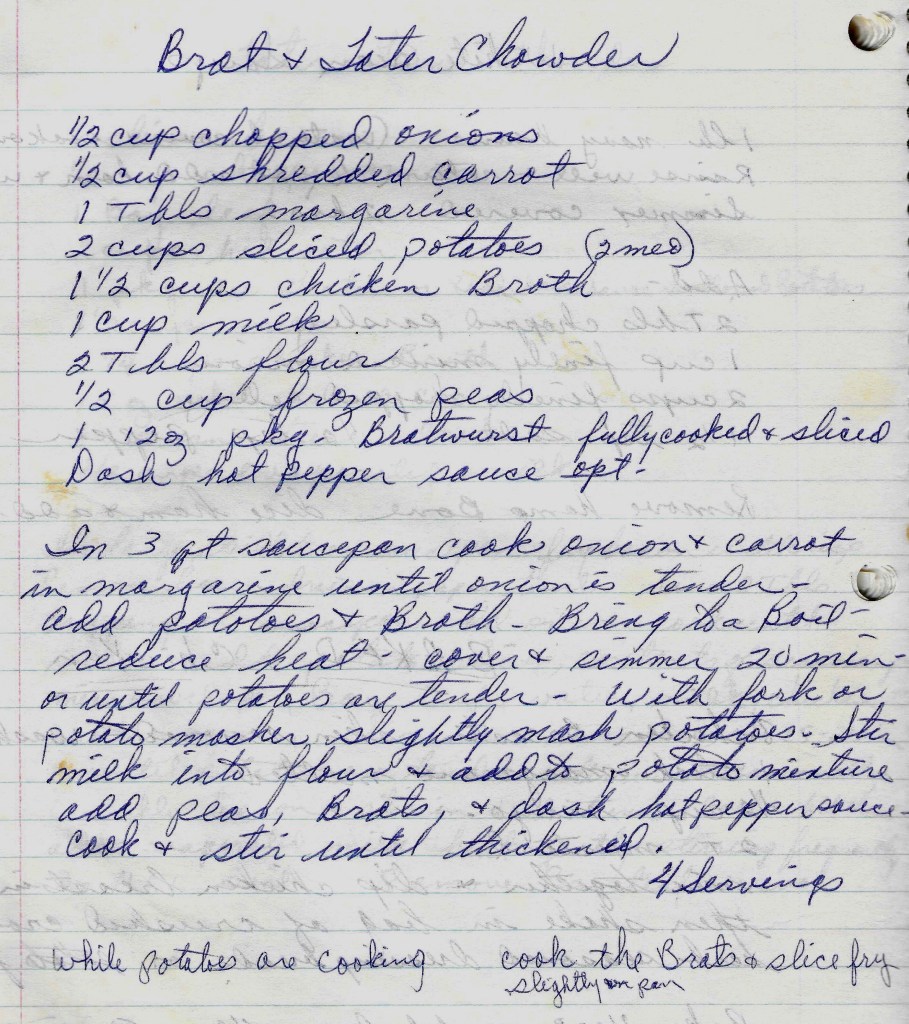 Brat & Tater Chowder
1/2 cup chopped onions
1/2 cup shredded carrot
1 Tbls margarine
2 cups sliced potatoes (2 med)
1 1/2 cups chicken Broth
1 cup milk
2 Tbls flour
1/2 cup frozen peas
1 12 oz pkg. Bratwurst fully cooked & sliced
Dash hot pepper sauce opt.
In 3 qt saucepan cook onion & carrot
in margarine until onion is tender -
add potatoes & Broth - Bring to a Boil -
reduce heat - cover & simmer 20 min -
or until potatoes are tender - With fork or
potato masher slightly mash potatoes. Stir
milk into flour & add to potato mixture
add peas, Brats, & dash hot pepper sauce -
cook & stir until thickened.
4 Servings
While potatoes are cooking cook the Brats & slice fry
slightly in pan